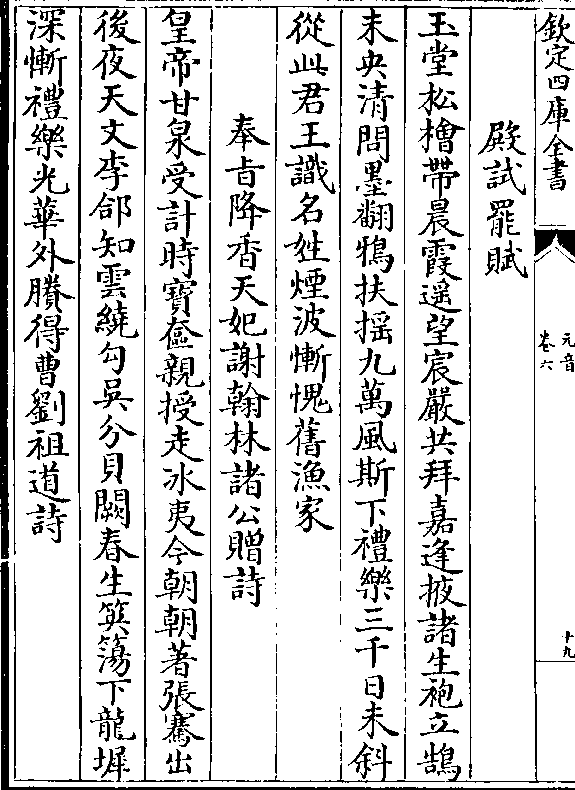 欽定四庫全書
元音
卷六
十九
殿試罷賦
玉堂松檜帶晨霞遥望宸嚴共拜嘉逢掖諸生袍立鵠
未央清問墨翻鴉扶揺九萬風斯下禮樂三千日未斜
從此君王識名姓煙波慚愧舊漁家
奉㫖降香天妃謝翰林諸公贈詩
皇帝甘泉受計時寳奩親授走冰夷今朝朝著張騫出
後夜天文李郃知雲繞勾吳分貝闕春生篔簜下龍墀
深慚禮樂光華外賸得曹劉祖道詩